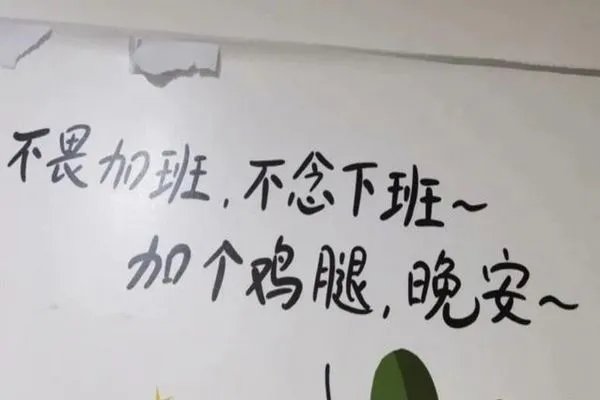 不畏加班,不念下班~
加个鸡腿,晚安~